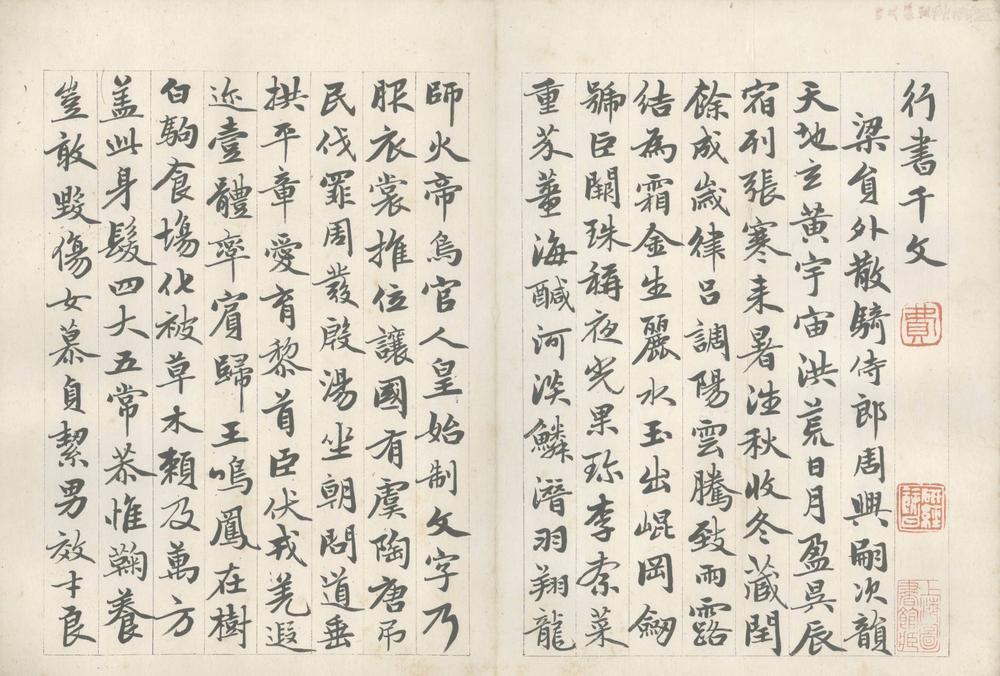 行書千文
費
上海圖書館藏
梁貟外散騎侍郎周興嗣次韻
天地玄黃宇宙洪荒日月盈昃辰
宿列張寒来暑往秋收冬藏閏
餘成歲律呂調陽雲騰致雨露
結為霜金生麗水玉出崐岡劒
號巨闕珠稱夜光果珍李柰菜
重芥薑海醎河淡鱗潛羽翔龍
師火帝鳥官人皇始制文字乃
服衣裳推位讓國有虞陶唐弔
民伐罪周發殷湯坐朝問道垂
拱平章愛育黎首臣伏戎羌遐
迩壹體率賓歸王鳴鳳在樹
白駒食場化被草木賴及萬方
盖此身髮四大五常恭惟鞠養
豈敢毀傷女慕貞絜男效才良